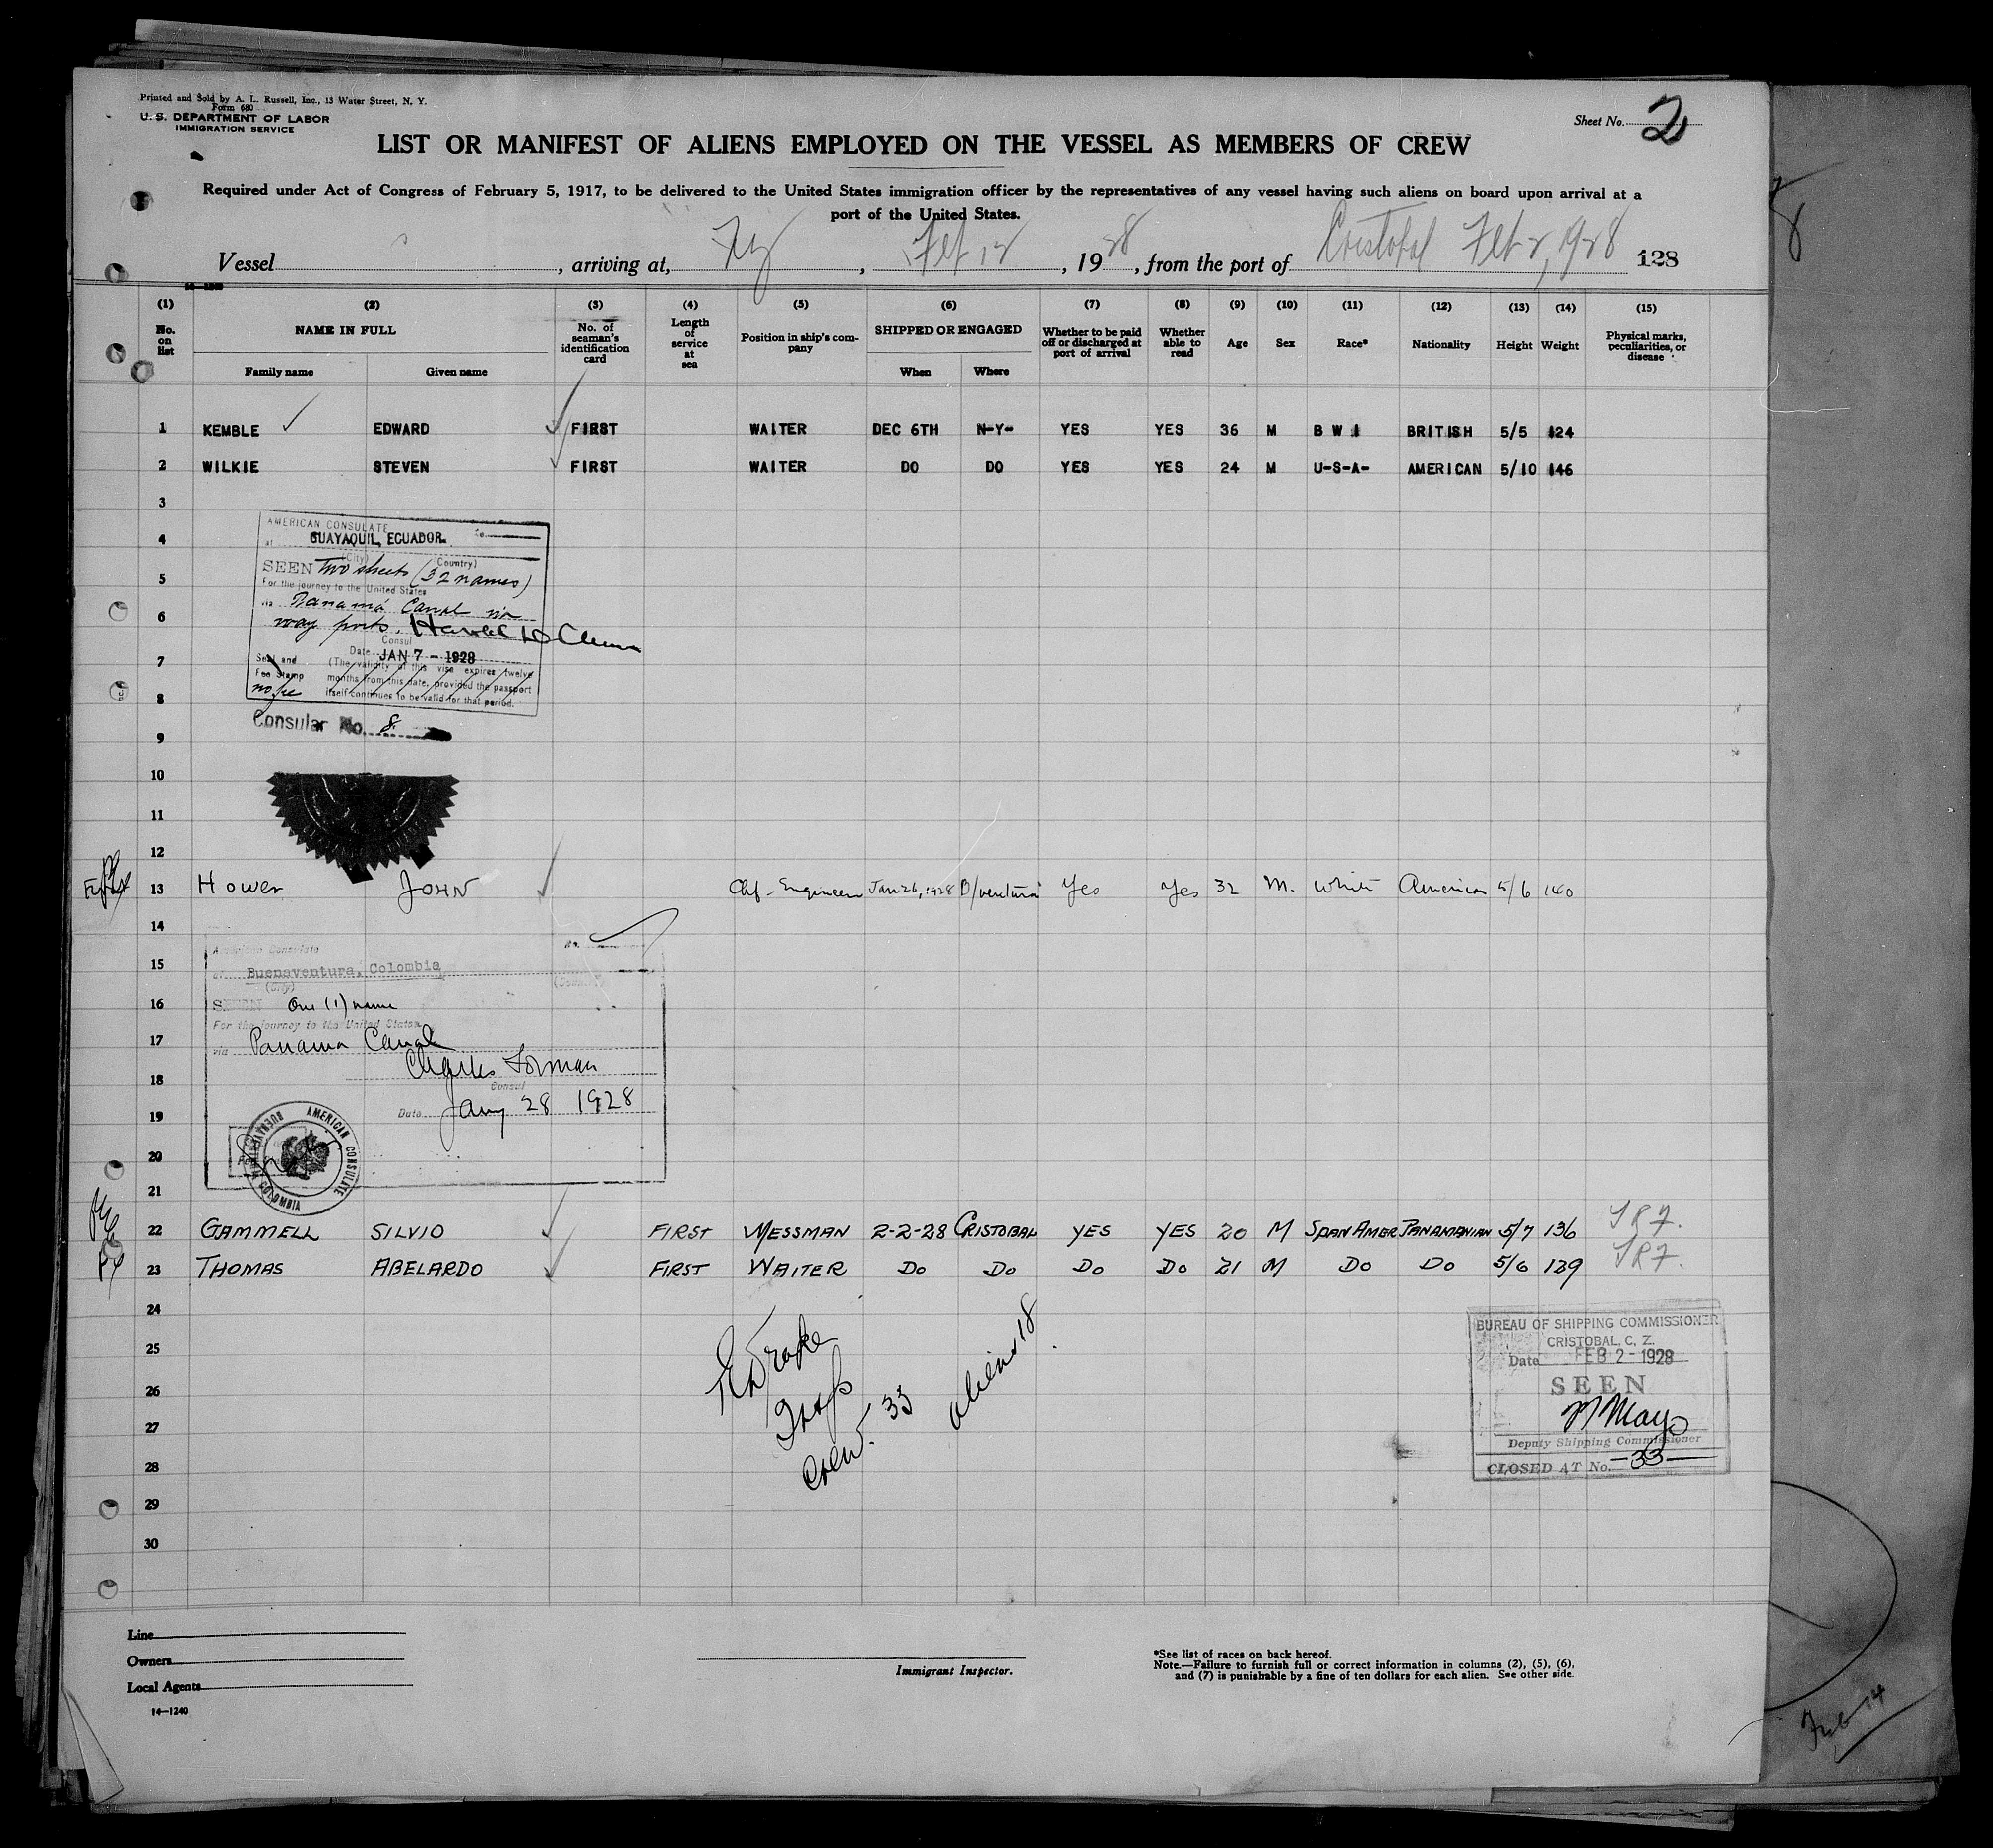 Printed and Sold by A. L. Russell, Inc., 13 Water Street, N. Y.
Form 680
U. S. DEPARTMENT OF LABOR
IMMIGRATION SERVICE
Sheet No. 2
LIST OR MANIFEST OF ALIENS EMPLOYED ON THE VESSEL AS MEMBERS OF CREW
Required under Act of Congress of February 5, 1917, to be delivered to the United States immigration officer by the representatives of any vessel having such aliens on board upon arrival at a
port of the United States.
Vessel , arriving at, NY , Feb 12 , 1928 , from the port of Cristobal Feb 2, 1928 128
(1) (2) (3) (4) (5) (6) (7) (8) (9) (10) (11) (12) (13) (14) (15)
No. on list NAME IN FULL No. of seaman's identification card Length of service at sea Position in ship's company SHIPPED OR ENGAGED Whether to be paid off or discharged at port of arrival Whether able to read Age Sex Race* Nationality Height Weight Physical marks, peculiarities, or disease
Family name Given name When Where
1 KEMBLE EDWARD FIRST WAITER DEC 6TH N-Y- YES YES 36 M B W I BRITISH 5/5 124
2 WILKIE STEVEN FIRST WAITER DO DO YES YES 24 M U-S-A- AMERICAN 5/10 146
3
4
5
6
7
8
9
10
11
12
AMERICAN CONSULATE
at GUAYAQUIL, ECUADOR.
(City) (Country)
SEEN Two sheets (32 names)
For the journey to the United States
via Panamá Canal via
way ports.
Consul
Date JAN 7 - 1928
Seal and Fee Stamp
no fee
(The validity of this visa expires twelve
months from this date, provided the passport
itself continues to be valid for that period.
Consular No. 8
13 Hower JOHN Chf - Engineer Jan 26, 1928 B/ventura Yes Yes 32 M. White American 5/6 140
14
15
16
17
18
19
20
21
American Consulate No.
at Buenaventura, Colombia
(City) (Country)
SEEN One (1) name
For the journey to the United States
via Panama Canal
Charles Forman
Consul
Date Jany 28 1928
AMERICAN CONSULATE
BUENAVENTURA COLOMBIA
22 GAMMELL SILVIO FIRST MESSMAN 2-2-28 CRISTOBAL YES YES 20 M SPAN AMER PANAMANIAN 5/7 136
23 THOMAS ABELARDO FIRST WAITER DO DO DO DO 21 M DO DO 5/6 129
24
25
26
27
28
29
30
Drake
Insp
Crew. 33 aliens 18
BUREAU OF SHIPPING COMMISSIONER
CRISTOBAL, C. Z.
Date FEB 2 - 1928
SEEN
Mayo
Deputy Shipping Commissioner
CLOSED AT No. -33-
Line
Owners
Local Agents
14—1240
Immigrant Inspector.
*See list of races on back hereof.
Note.—Failure to furnish full or correct information in columns (2), (5), (6),
and (7) is punishable by a fine of ten dollars for each alien. See other side.
Feb 14